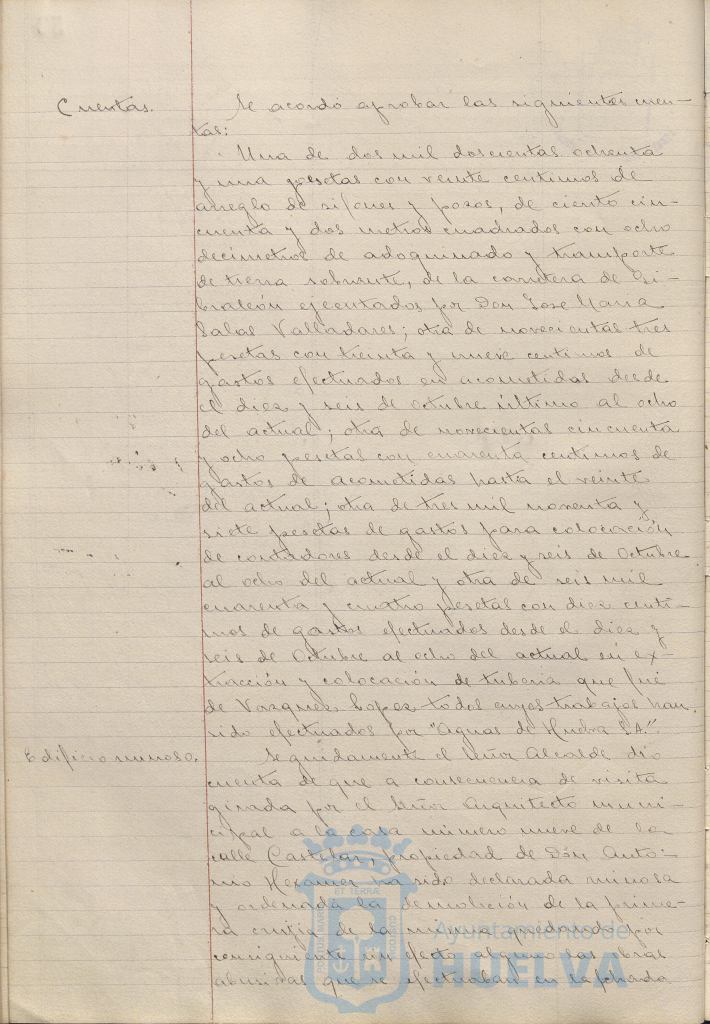 Cuentas. Se acordó aprobar las siguientes cuen-
tas:
Una de dos mil doscientas ochenta
y una pesetas con veinte centimos de
arreglo de sifones y pozos, de ciento cin-
cuenta y dos metros cuadrados con ocho
decimetros de adoquinado y transporte
de tierra sobrante, de la carretera de Gi-
braleón ejecutados por Don Jose Maria
Salas Valladares; otra de novecientas tres
pesetas con treinta y nueve centimos de
gastos efectuados en acometidas desde
el diez y seis de Octubre último al ocho
del actual; otra de novecientas cincuenta
y ocho pesetas con cuarenta centimos de
gastos de acometidas hasta el veinte
del actual; otra de tres mil noventa y
siete pesetas de gastos para colocación
de contadores desde el diez y seis de Octubre
al ocho del actual y otra de seis mil
cuarenta y cuatro pesetas con diez centi-
mos de gastos efectuados desde el diez y
seis de Octubre al ocho del actual en ex-
tracción y colocación de tuberia que fué
de Vazquez Lopez todos cuyos trabajos han
sido efectuados por "Aguas de Huelva S.A."
Edificio ruinoso. Seguidamente el Señor Alcalde dió
cuenta de que a consecuencia de visita
girada por el Señor Arquitecto muni-
cipal a la casa número nueve de la
calle Castelar, propiedad de Don Anto-
nio ha sido declarada ruinosa
y ordenada la demolición de la prime-
ra crujia de la misma quedando por
consiguiente sin efecto alguno las obras
abusivas que se efectuaban en la fachada
PORTUS MARIS ET TERRAE CUSTODIA
Ayuntamiento de
HUELVA